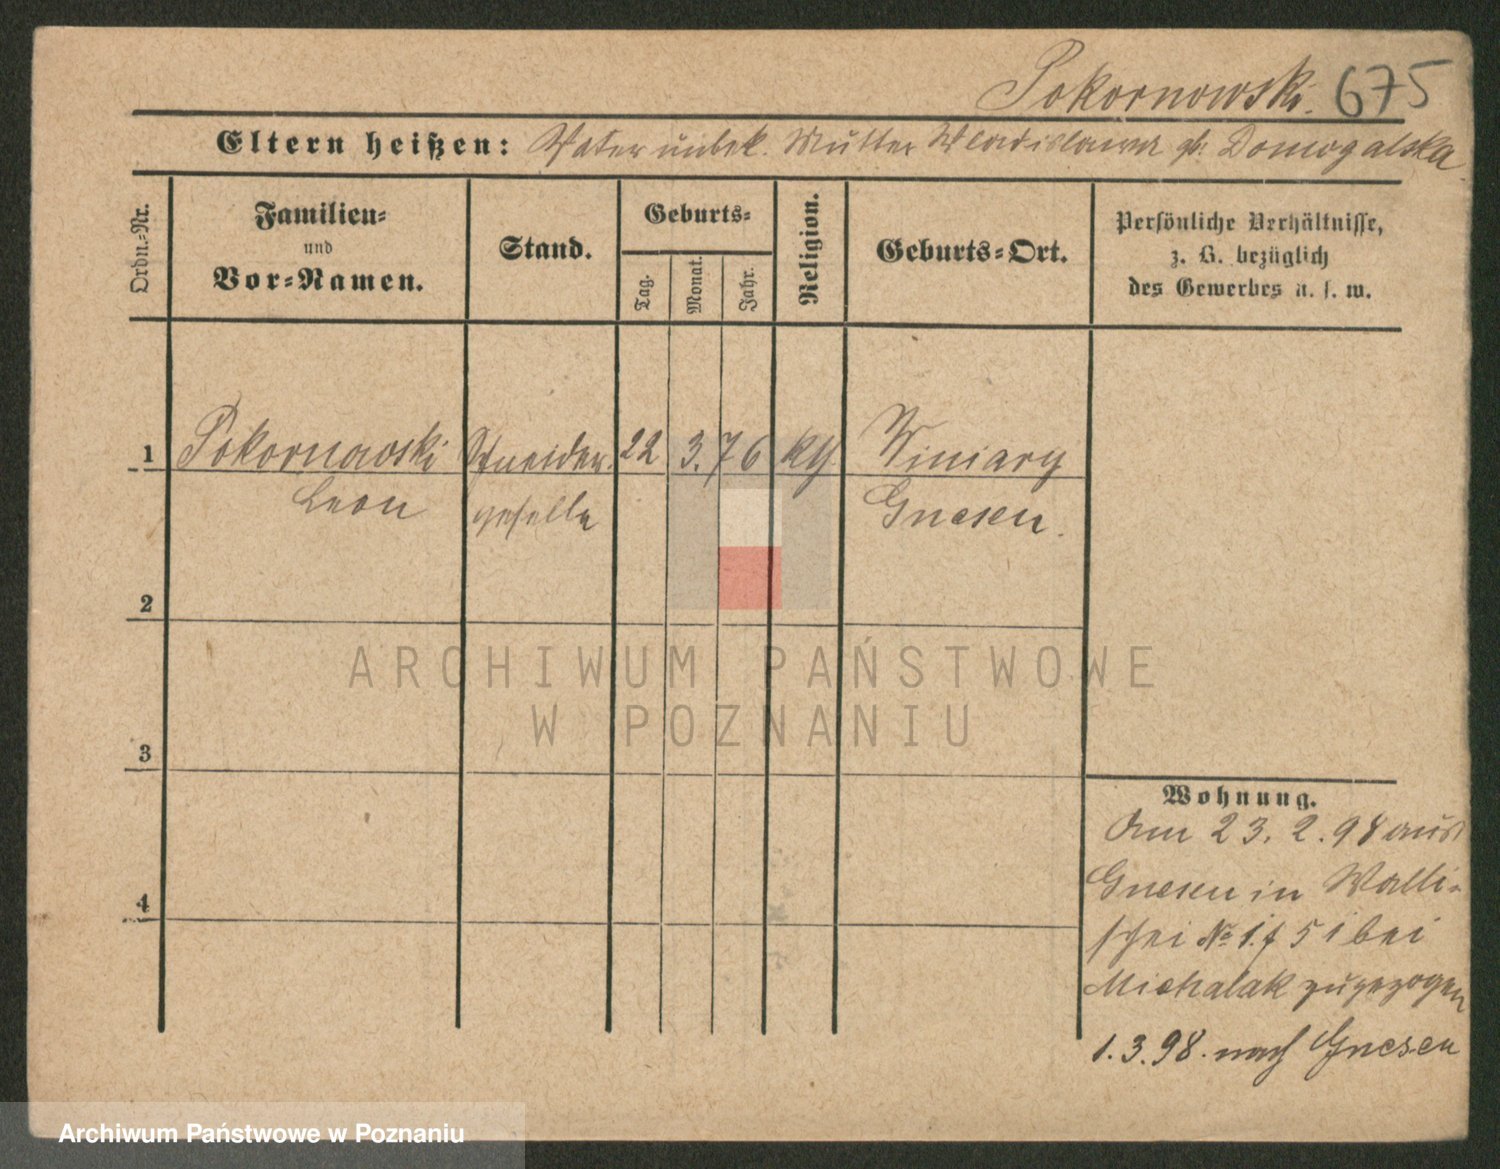 Pokornowski. 675
Eltern heißen: Vater unbek. Mutter Wladislawa gb: Domogalska.
Ordn.-Nr.
Familien-
und
Vor-Namen.
Stand.
Geburts-
Tag.
Monat.
Jahr.
Religion.
Geburts-Ort.
Persönliche Verhältnisse,
z. B. bezüglich
des Gewerbes u. s. w.
1 Pokornowski Schneider 22 3. 76 kth Winiary
Leon geselle Gnesen.
2
ARCHIWUM PAŃSTWOWE
W POZNANIU
3
Wohnung.
Am 23. 2. 98 aus
Gnesen in Walli-
schei № 51 bei
4
Michalak zugezogen
1.3.98. nach Gnesen
Archiwum Państwowe w Poznaniu